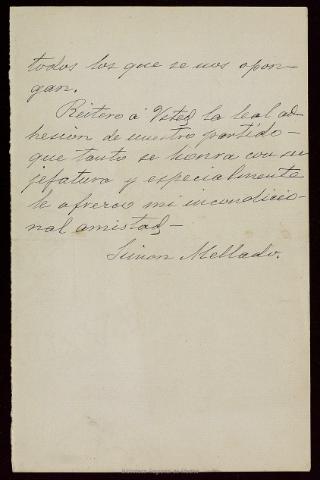 todos los que se nos opon-
gan.
Reitero á Vsted la leal ad-
hesion de nuestro partido-
que tanto se honra con su
jefatura y especialmente
le ofrezco mi incondicio-
nal amistad-
Simon Mellado.